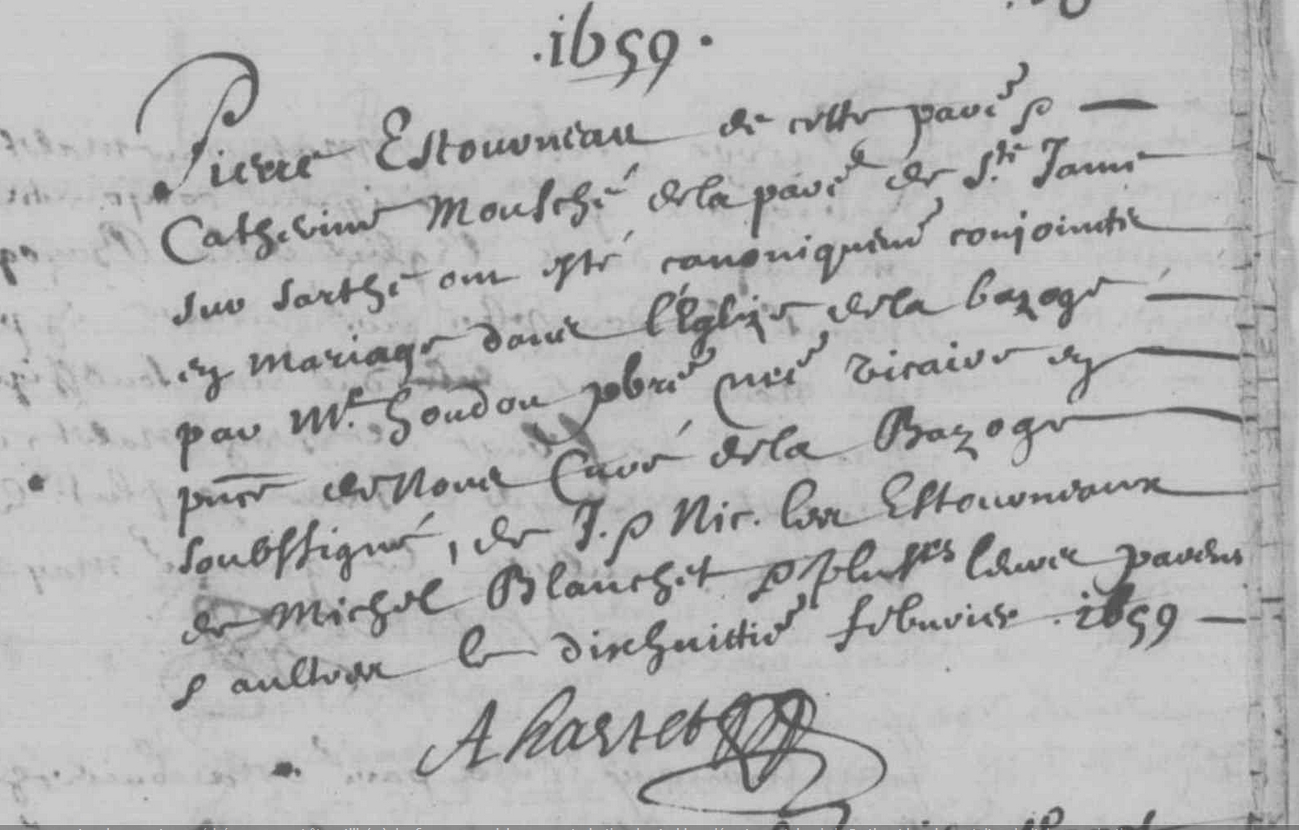 .1659.
Pierre Estourneau de cette paroisse &
Catherine Mousché de la paroisse de Ste Jame
sur Sarthe ont esté canoniquemt conjoincts
en mariage dans l'Eglize de la bazoge
par Mre houdou pbre nre vicaire en
pnce de Nous Curé de la Bazoge
soubssigné, de J. & Nic. les Estourneaux
de Michel Blanchet & plusrs leurs parens
& aultres le dixhuittie febvrier .1659
A hastet